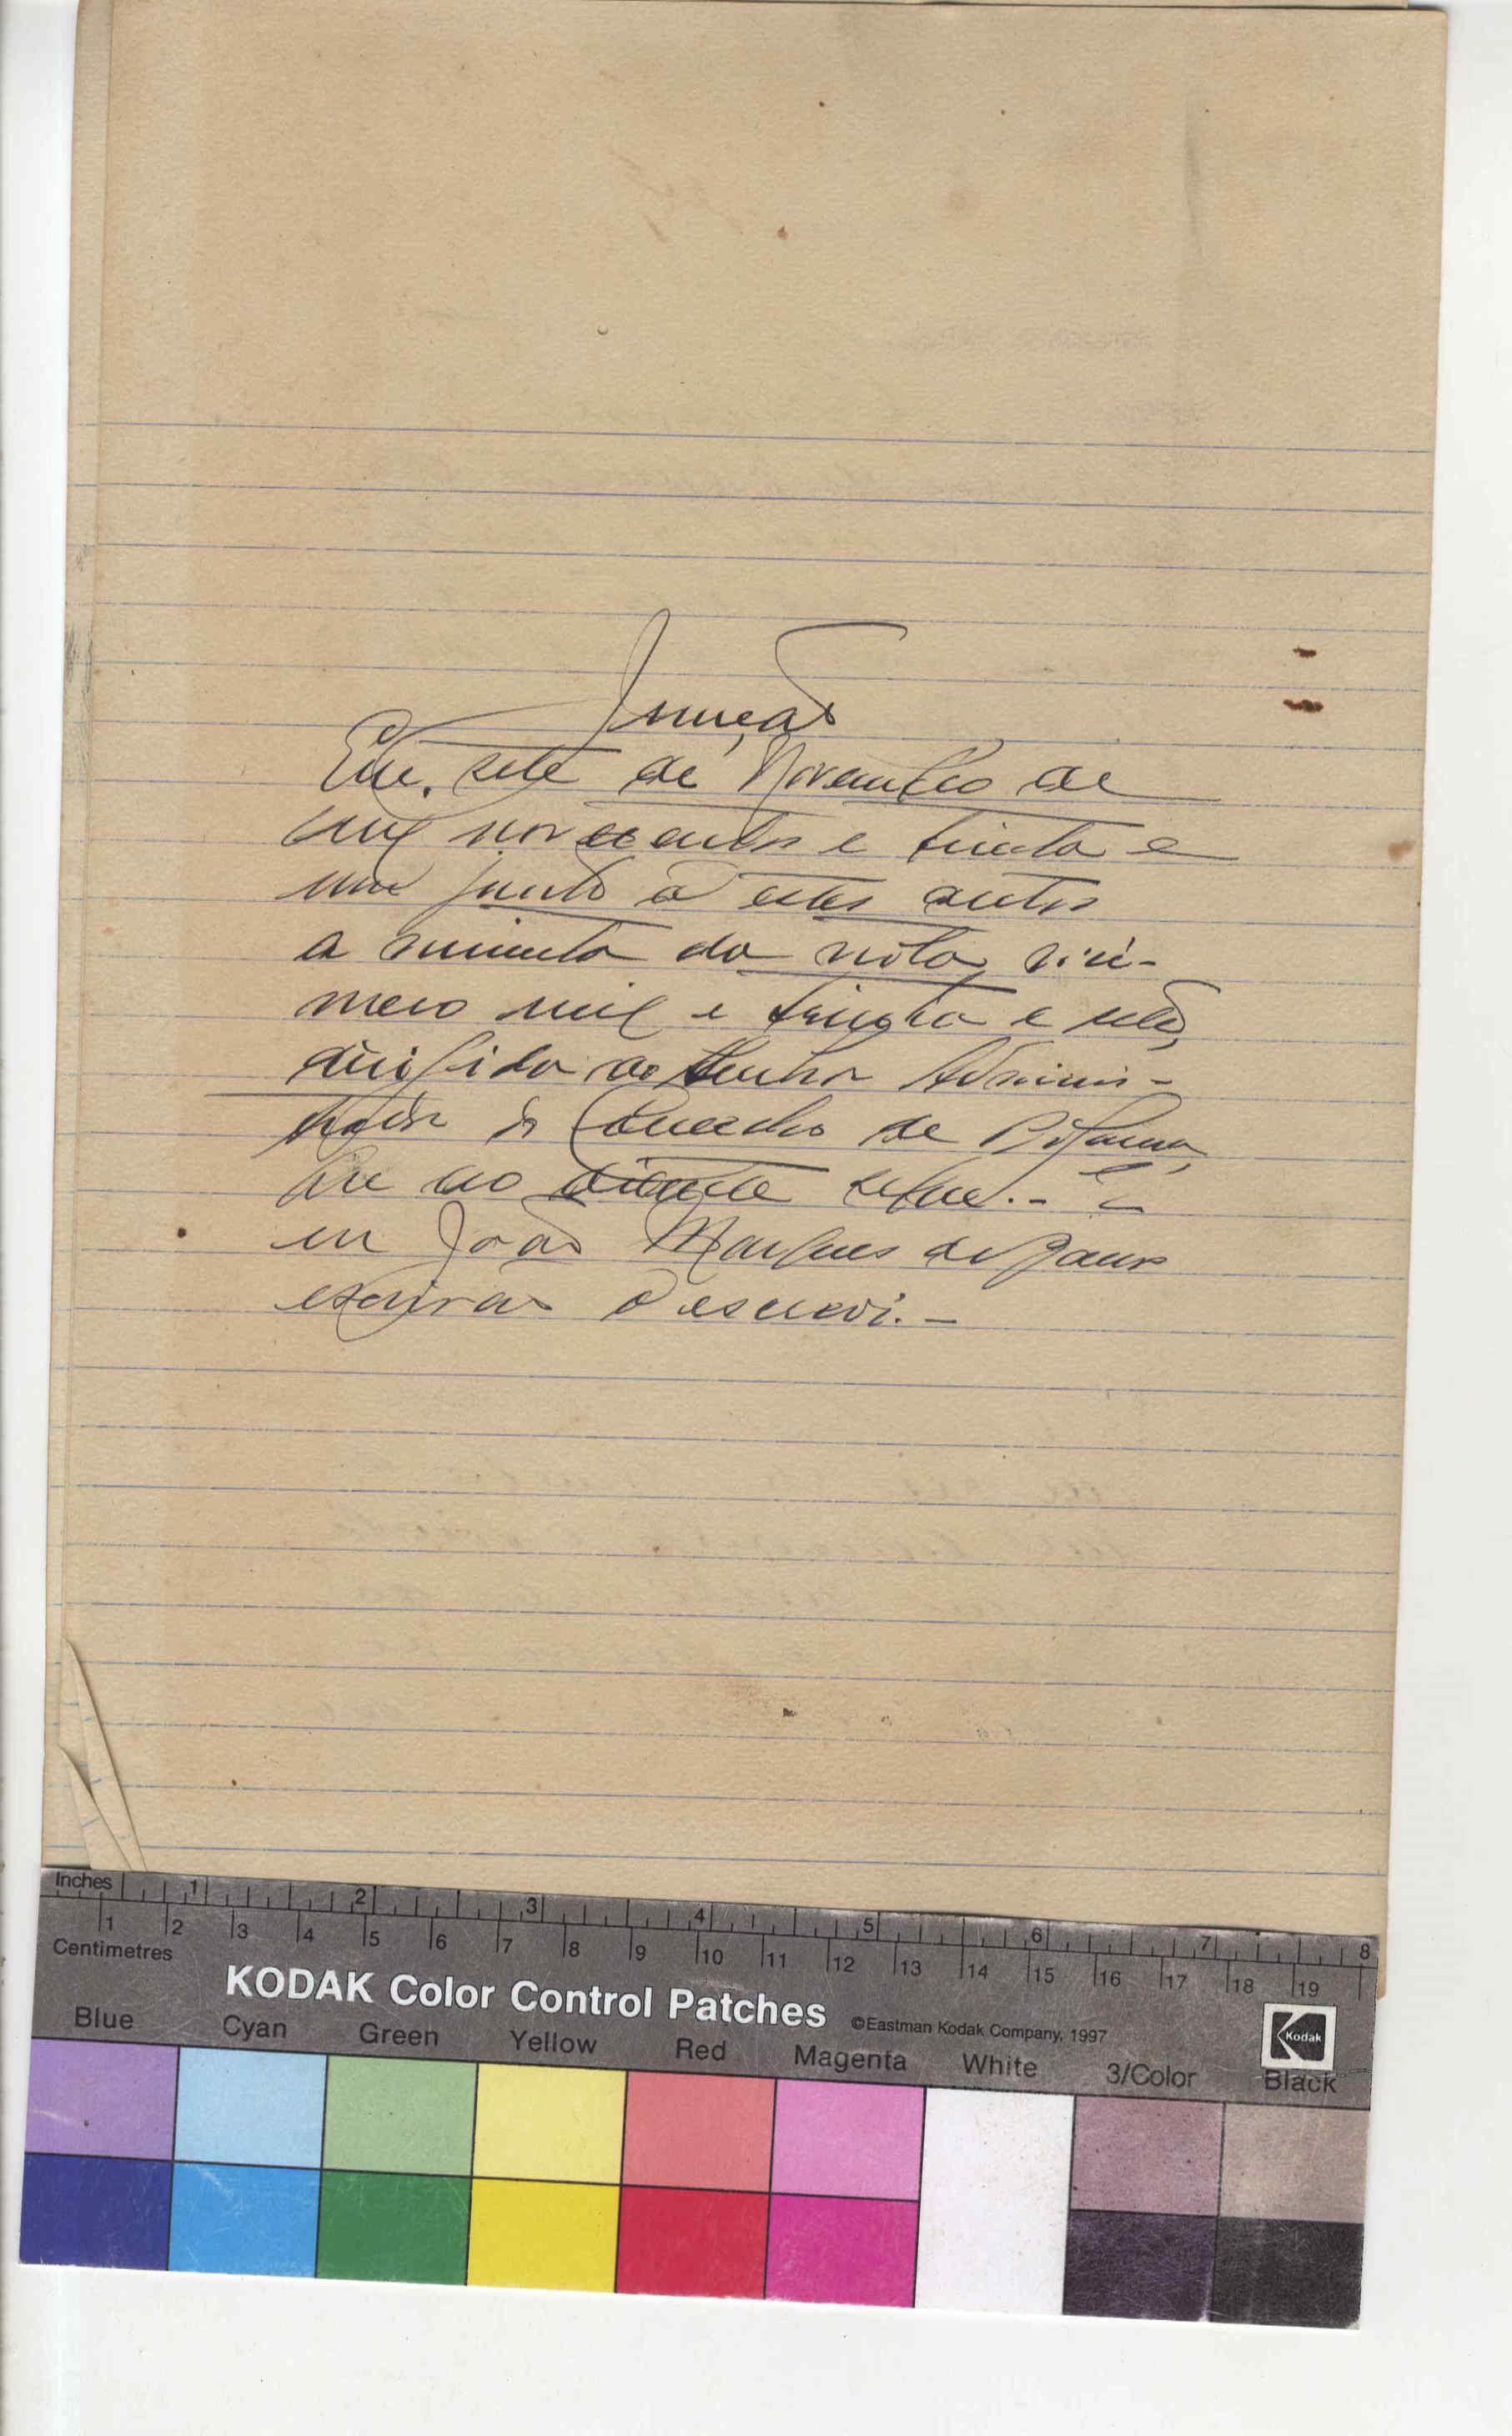 Junção
Em sete de Novembro de
mil novecentos e trinta e
um junto a estes autos
a minuta da nota nú-
mero mil e trinta e sete,
dirigida ao Senhor Adminis-
trador do Concelho de
que ao diante segue.- E
eu João Marques de
escrivão o escrevi.-
Inches 1 2 3 4 5 6 7 8
1 2 3 4 5 6 7 8 9 10 11 12 13 14 15 16 17 18 19
Centimetres
KODAK Color Control Patches ©Eastman Kodak Company, 1997 Kodak
Blue Cyan Green Yellow Red Magenta White 3/Color Black